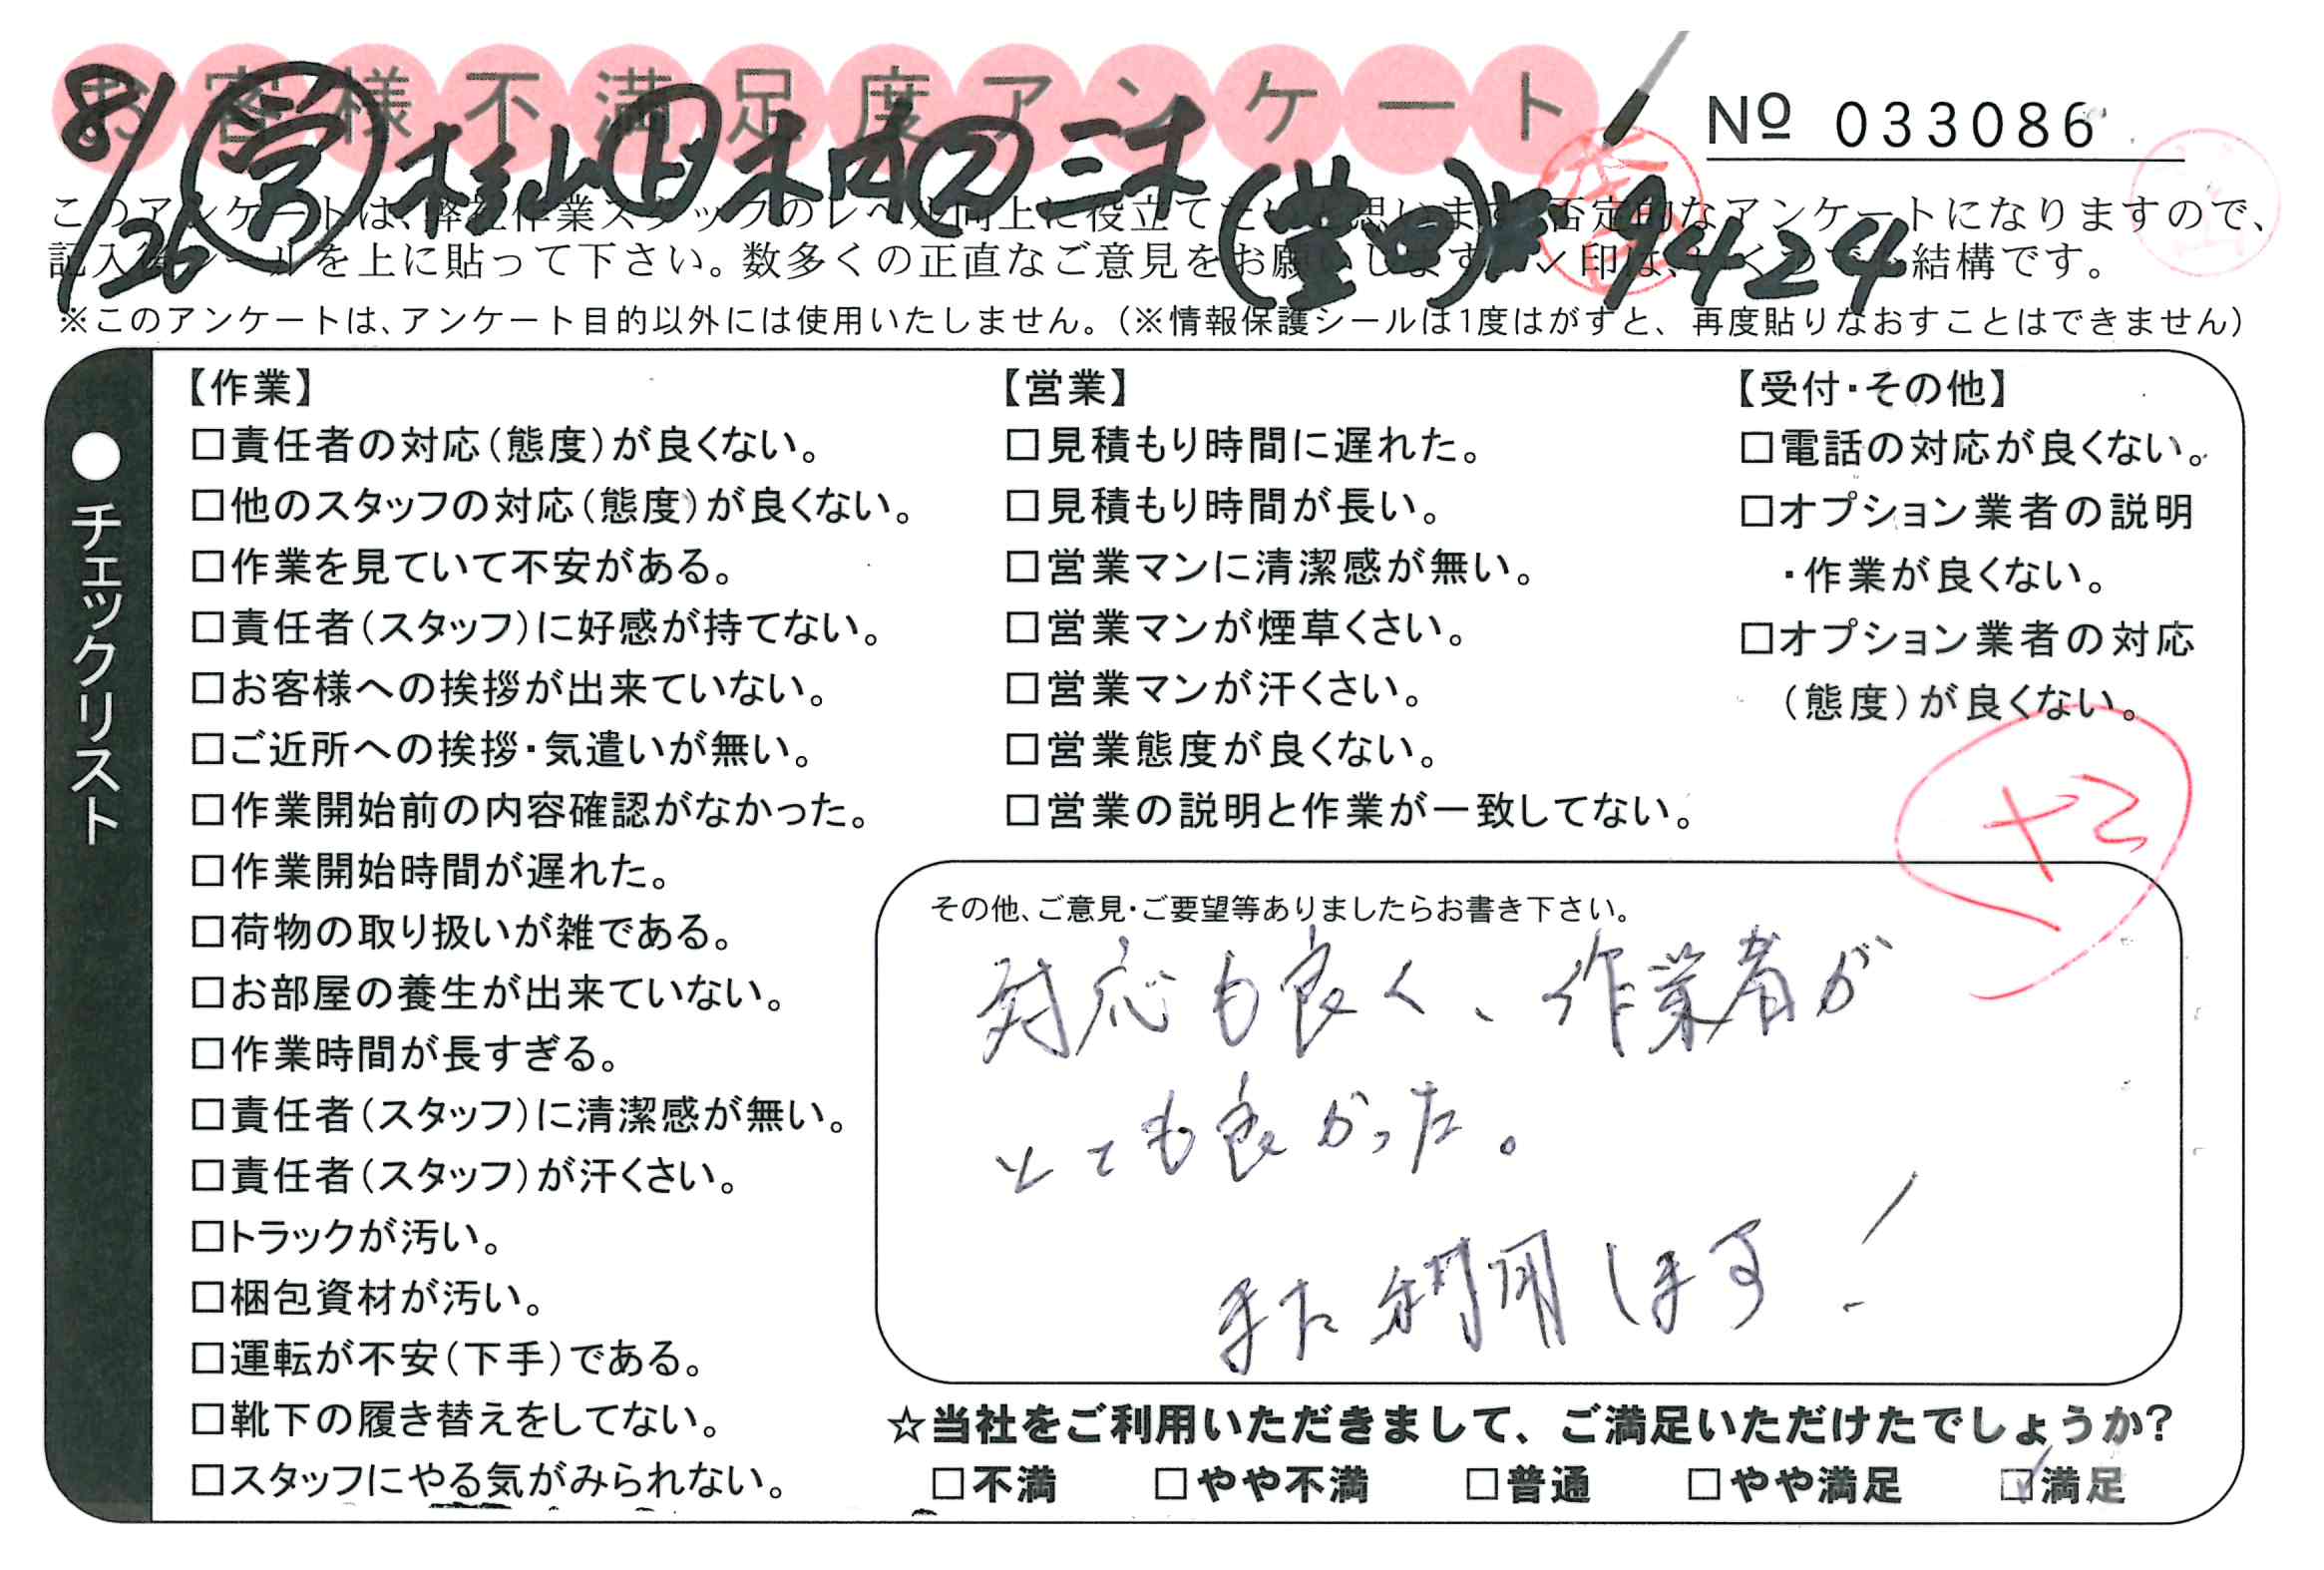 お客様不満足度アンケート
№ 033086
8/26
(豊田)#9424
このアンケートは、弊社作業スタッフのレベル向上に役立てたいと思います。否定的なアンケートになりますので、
記入後シールを上に貼って下さい。数多くの正直なご意見をお願いします。✓印は、いくつでも結構です。
※このアンケートは、アンケート目的以外には使用いたしません。(※情報保護シールは1度はがすと、再度貼りなおすことはできません)
●チェックリスト
【作業】
□責任者の対応(態度)が良くない。
□他のスタッフの対応(態度)が良くない。
□作業を見ていて不安がある。
□責任者(スタッフ)に好感が持てない。
□お客様への挨拶が出来ていない。
□ご近所への挨拶・気遣いが無い。
□作業開始前の内容確認がなかった。
□作業開始時間が遅れた。
□荷物の取り扱いが雑である。
□お部屋の養生が出来ていない。
□作業時間が長すぎる。
□責任者(スタッフ)に清潔感が無い。
□責任者(スタッフ)が汗くさい。
□トラックが汚い。
□梱包資材が汚い。
□運転が不安(下手)である。
□靴下の履き替えをしてない。
□スタッフにやる気がみられない。
【営業】
□見積もり時間に遅れた。
□見積もり時間が長い。
□営業マンに清潔感が無い。
□営業マンが煙草くさい。
□営業マンが汗くさい。
□営業態度が良くない。
□営業の説明と作業が一致してない。
【受付・その他】
□電話の対応が良くない。
□オプション業者の説明
・作業が良くない。
□オプション業者の対応
(態度)が良くない。
+2
その他、ご意見・ご要望等ありましたらお書き下さい。
対応も良く、作業者が
とても良かった。
また利用します!
☆当社をご利用いただきまして、ご満足いただけたでしょうか?
□不満 □やや不満 □普通 □やや満足 ☑満足